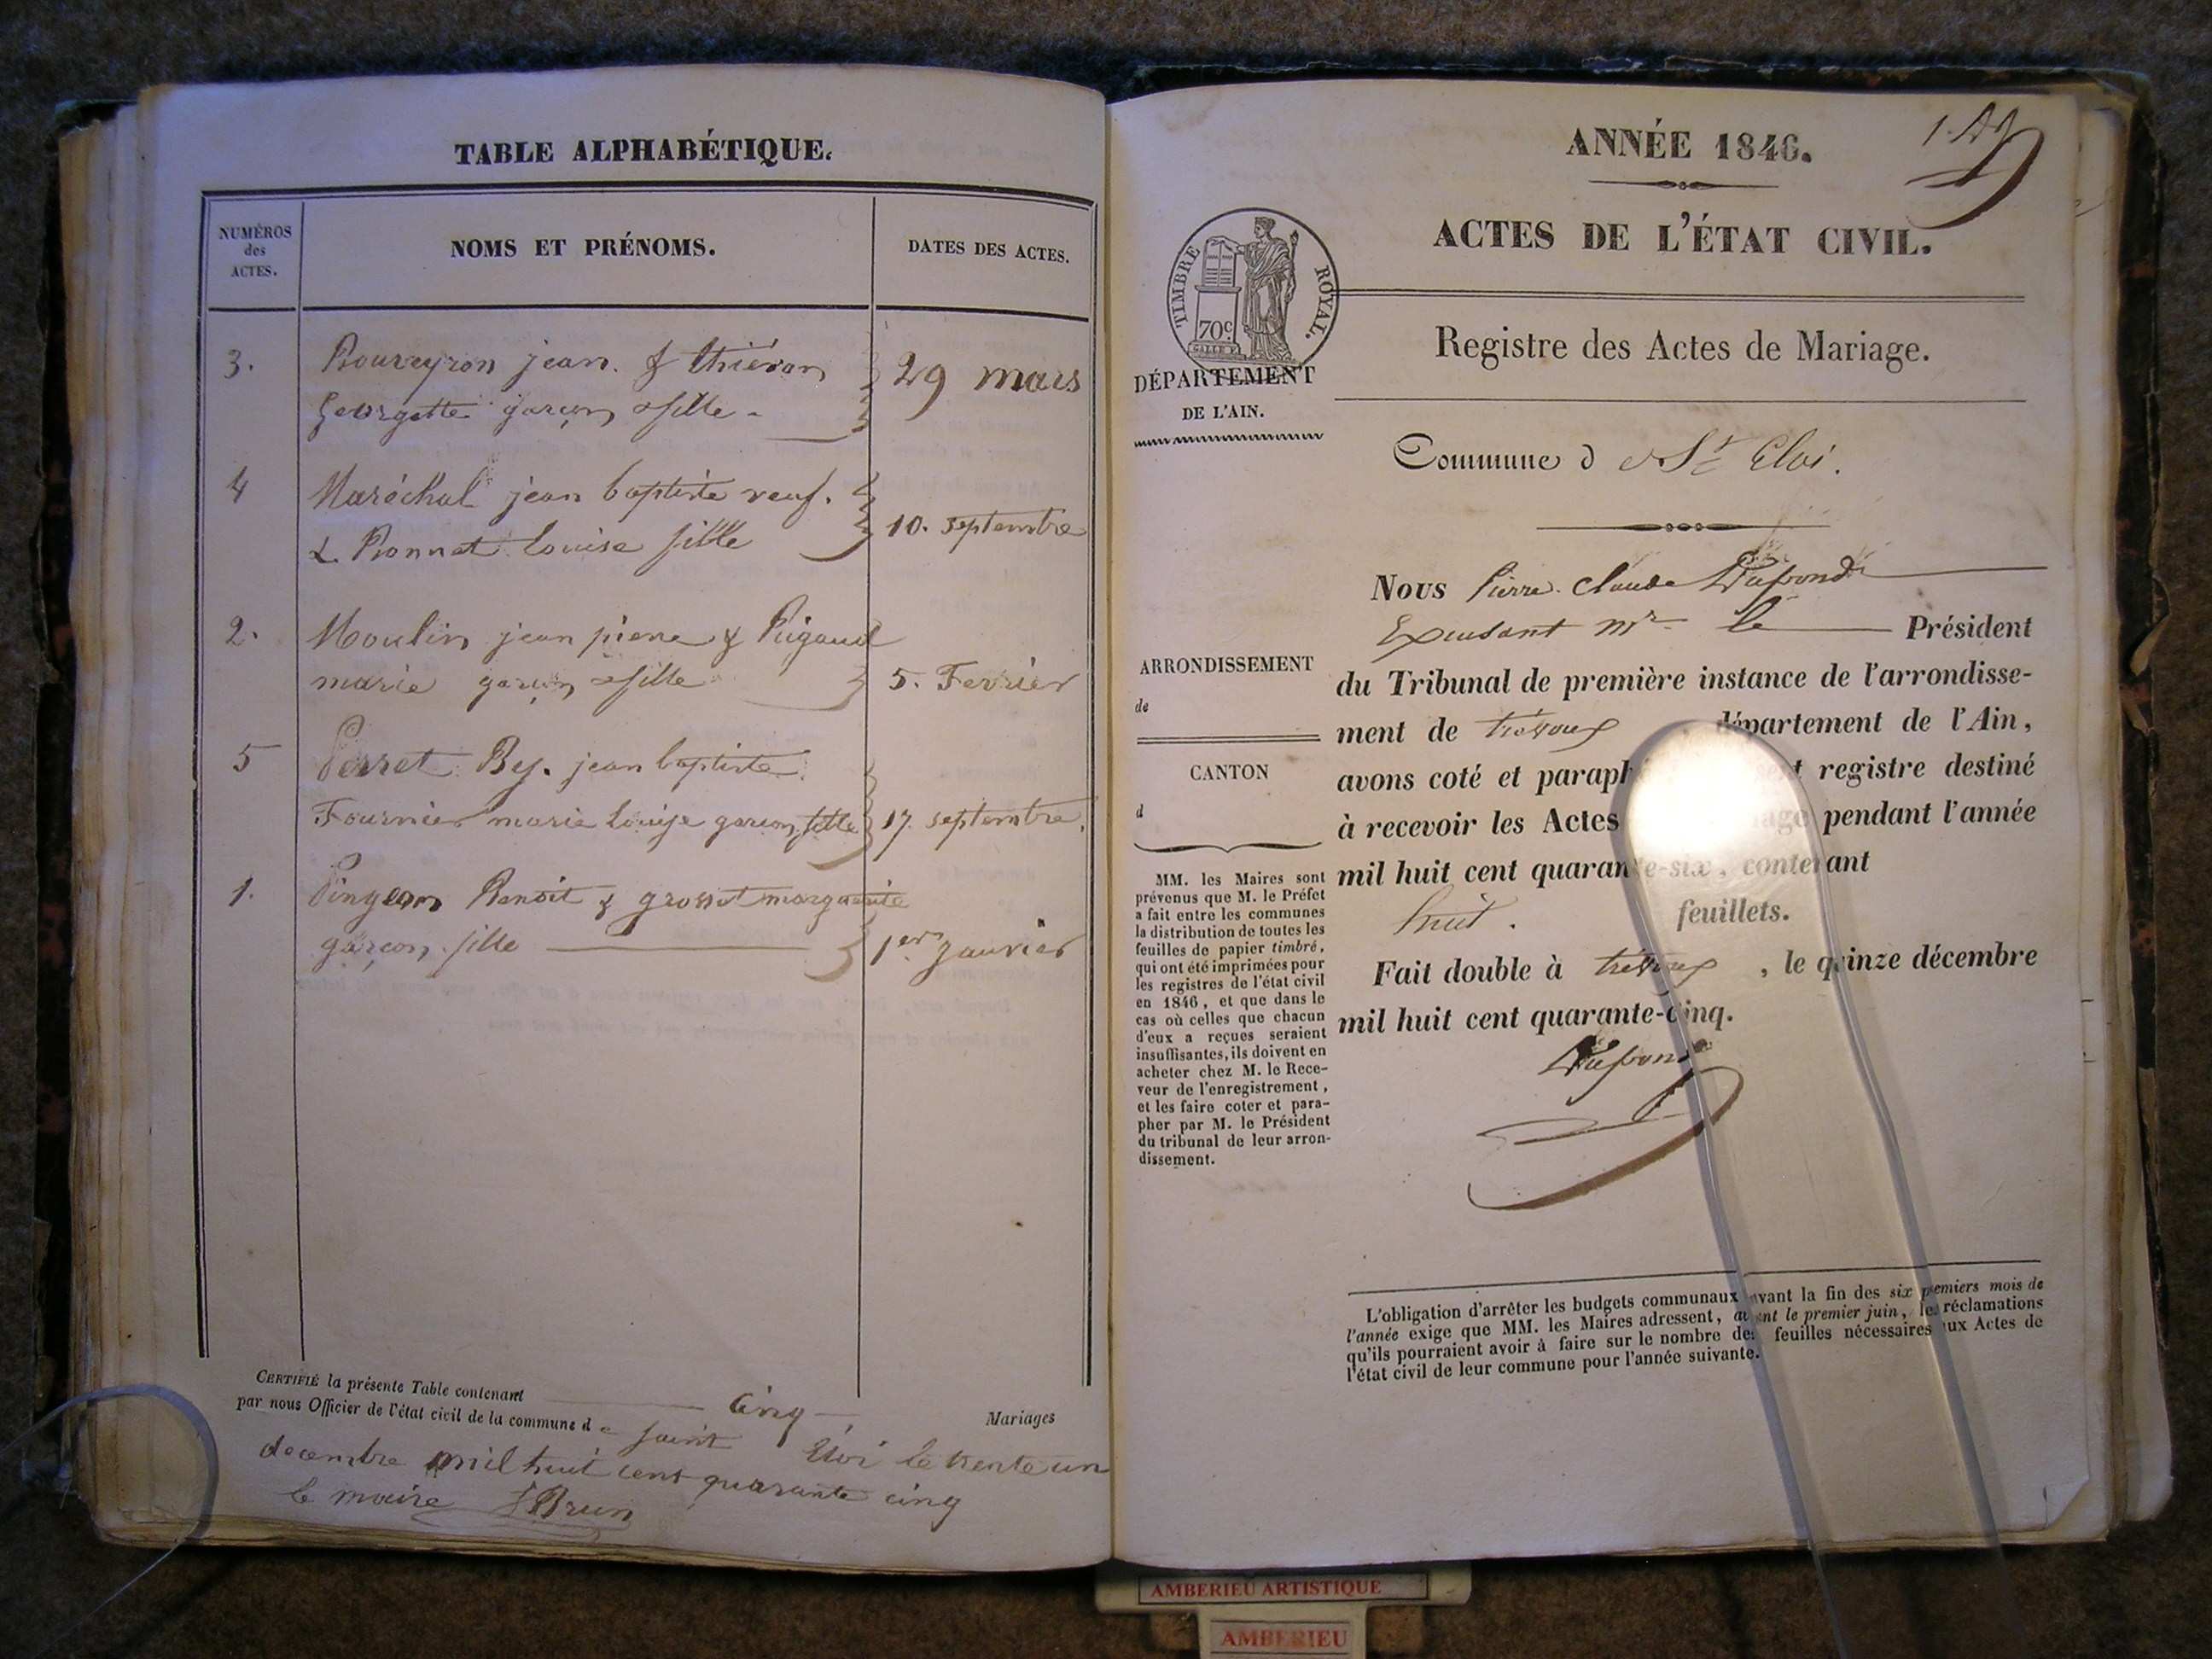 TABLE ALPHABÉTIQUE.
NUMÉROS
des
ACTES.
NOMS ET PRÉNOMS.
DATES DES ACTES.
3. Bouveyron jean. & thiévon
Georgette garçon & fille - 29 mars
4 Maréchal jean baptiste veuf.
& Ronnet Louise fille 10. septembre
2. Moulin jean pierre & Rigaud
marie garçon & fille 5. Fevrier
5 Perret jean baptiste
Fournier marie Louise garçon, fille 17. septembre.
1. Pingeon Benoit & grosset marguerite
garçon. fille 1er Janvier
CERTIFIÉ la présente Table contenant Cinq Mariages
par nous Officier de l'état civil de la commune de saint Eloi le trente un
decembre mil huit cent quarante cinq
le maire Brun
ANNÉE 1846.
ACTES DE L'ÉTAT CIVIL.
TIMBRE ROYAL.
70c
DÉPARTEMENT
DE L'AIN.
Registre des Actes de Mariage.
Commune d e St Eloi.
Nous Pierre Claude
mr le Président
ARRONDISSEMENT
de
CANTON
d
du Tribunal de première instance de l'arrondisse-
ment de trévoux, département de l'Ain,
avons coté et paraph registre destiné
à recevoir les Actes pendant l'année
mil huit cent quarante-six, contenant
huit. feuillets.
Fait double à trévoux, le quinze décembre
mil huit cent quarante-cinq.
MM. les Maires sont
prévenus que M. le Préfet
a fait entre les communes
la distribution de toutes les
feuilles de papier timbré,
qui ont été imprimées pour
les registres de l'état civil
en 1846, et que dans le
cas où celles que chacun
d'eux a reçues seraient
insuffisantes, ils doivent en
acheter chez M. le Rece-
veur de l'enregistrement,
et les faire coter et para-
pher par M. le Président
du tribunal de leur arron-
dissement.
L'obligation d'arrêter les budgets communaux avant la fin des six premiers mois de
l'année exige que MM. les Maires adressent, avant le premier juin, les réclamations
qu'ils pourraient avoir à faire sur le nombre des feuilles nécessaires aux Actes de
l'état civil de leur commune pour l'année suivante.
AMBERIEU ARTISTIQUE
AMBERIEU